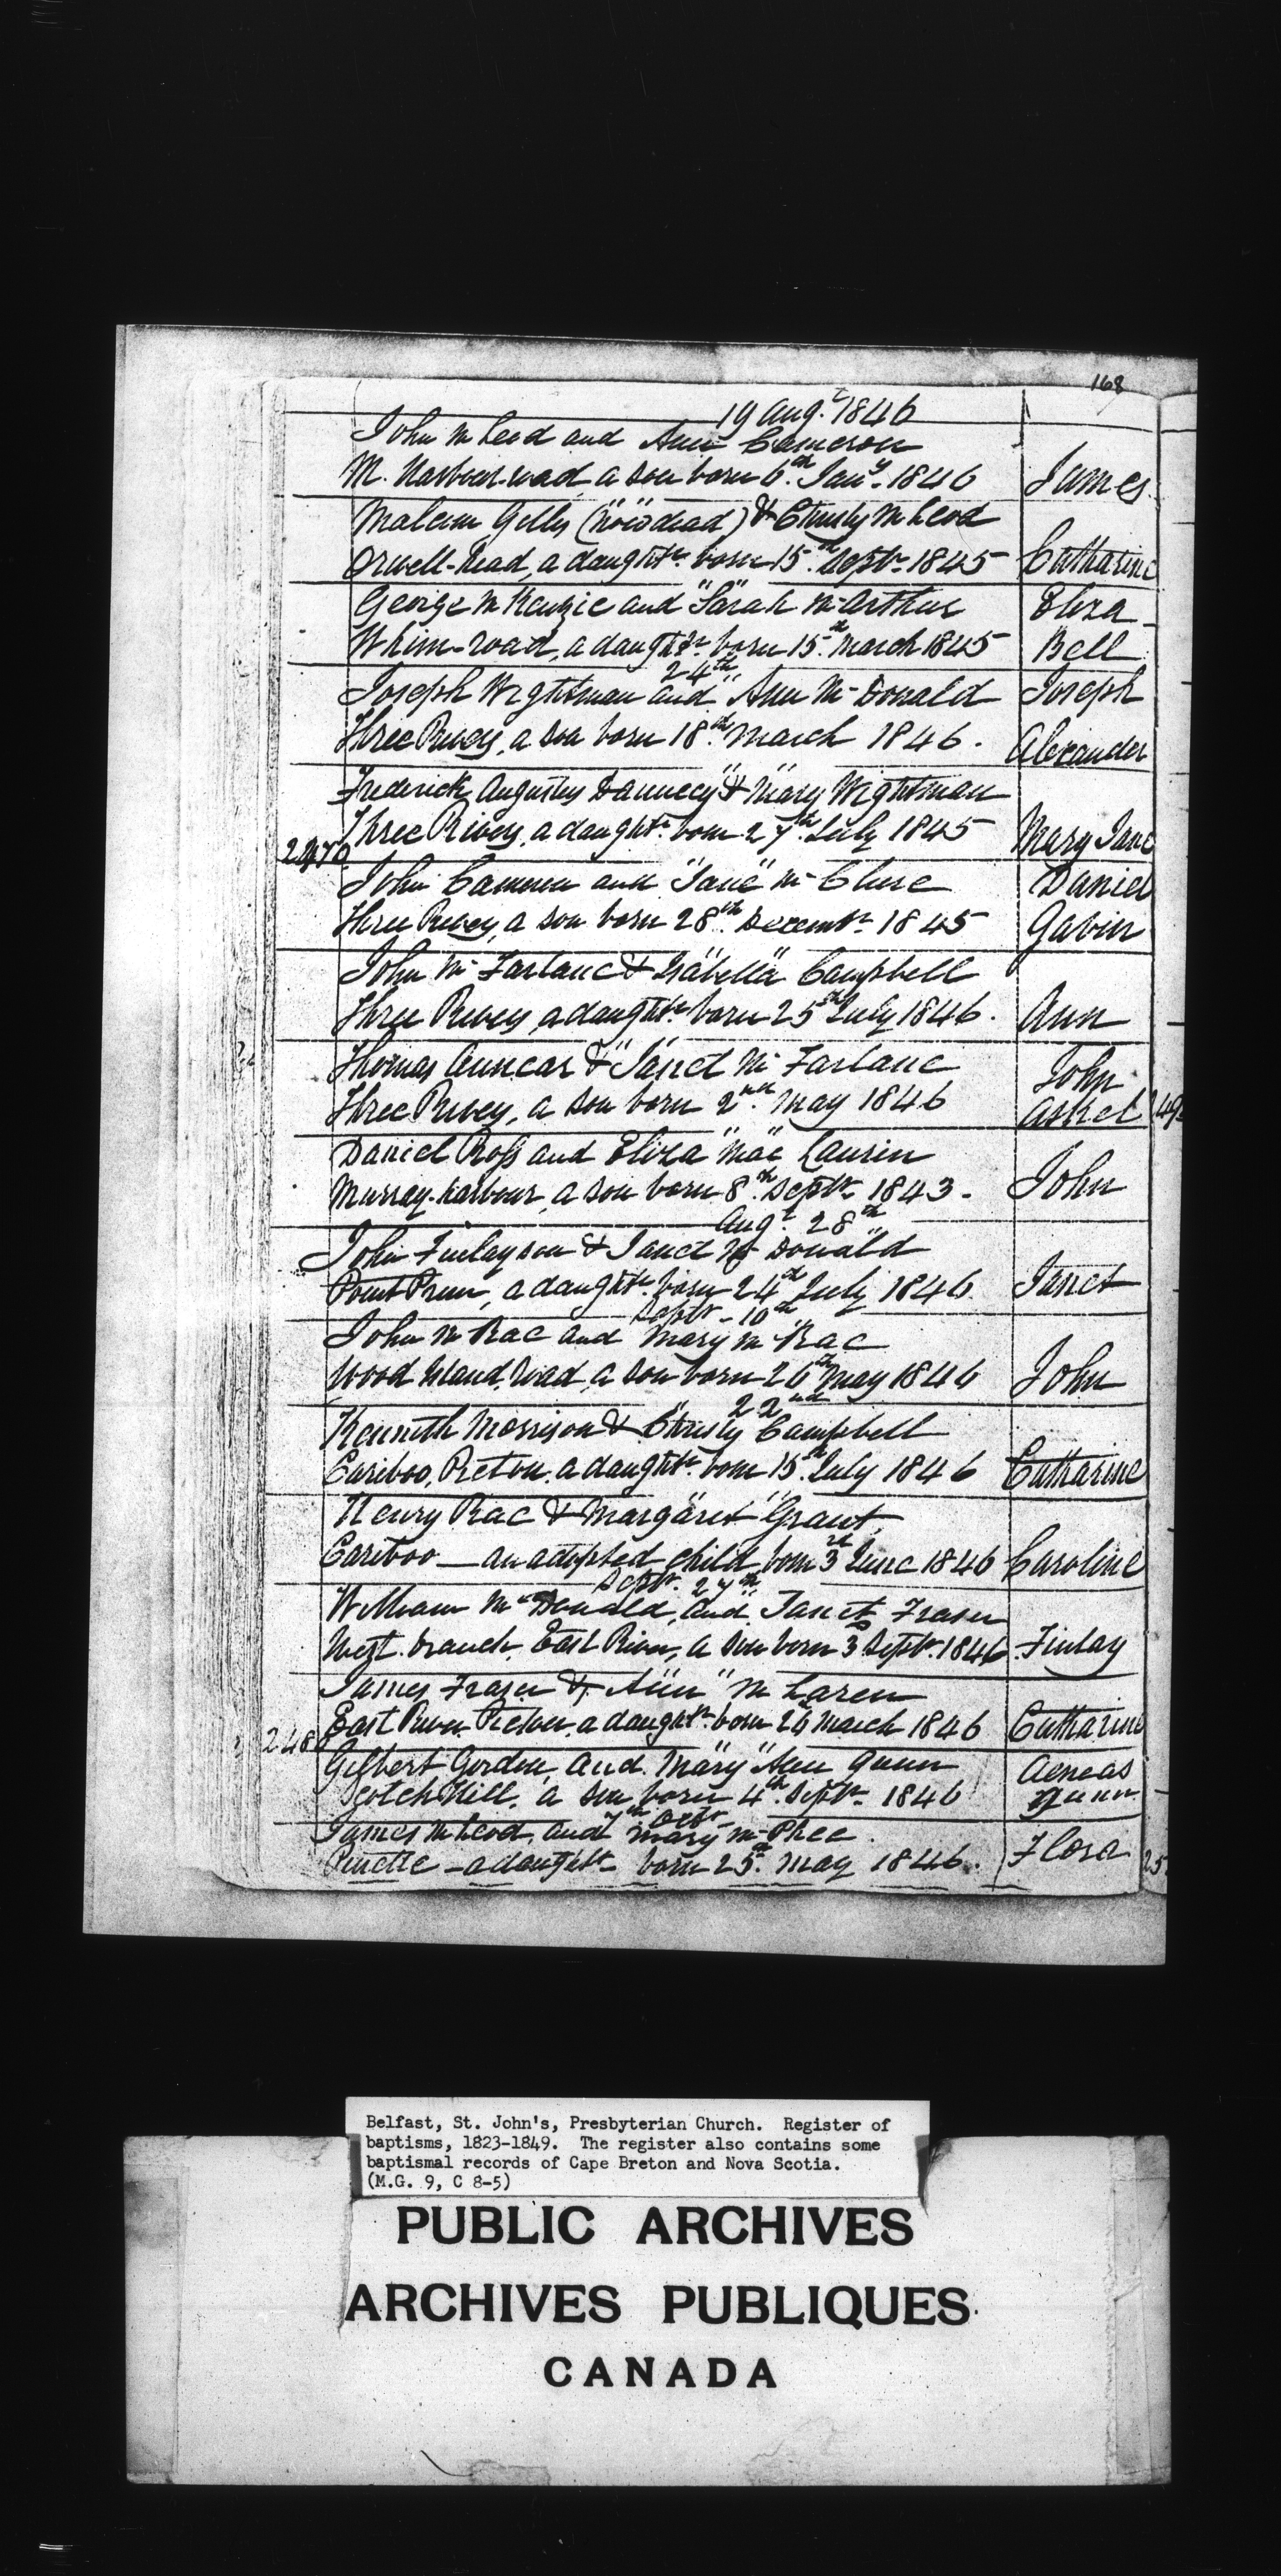 168
19 Augt 1846
John McLeod and Ann Cameron
M. Harbour-road, a son born 6th Jany 1846 James
Malcum Gillis (now dead) & Christy McLeod
Orwell-head, a daughtr born 15th Septr 1845 Catharine
George McKenzie and "Sarah" McArthur Eliza
Whim-road, a daughtr born 15th March 1845 Bell
24th
Joseph Wightman and "Ann McDonald Joseph
Three Rivers, a son born 18th March 1846. Alexander
Frederick Augustus & "Mary Wightman
Three Rivers, a daughtr born 27th July 1845 Mary Jane
2470
John Cameron and "Jane" McClure Daniel
Three Rivers, a son born 28th Decembr 1845 Gavin
John McFarlane & Isabella Campbell
Three Rivers, a daughtr born 25th July 1846. Ann
Thomas & "Janet McFarlane John
Three Rivers, a son born 2nd May 1846
Daniel Ross and Eliza "Mac Laurin
Murray-harbour, a son born 8th Septr 1843. John
Augt 28th
John Finlayson & Janet McDonald
Point Prim, a daughtr born 24th July 1846 Janet
Septr 10th
John McRae and Mary McRae
Wood Island road, a son born 26th May 1846 John
22nd
Kenneth Morrison & Christy Campbell
Cariboo, Picton, a daughtr born 15th July 1846 Catharine
Henry Rae & Margaret "Grant
Cariboo — an adopted child born 3rd June 1846 Caroline
Septr 27th
William McDonald, and Janet Fraser
West branch, East River, a son born 3 Septr 1846. Finlay
James Fraser & Ann" McLaren
East River Picton, a daughtr born 26 March 1846 Catharine
248
Gilbert Gordon, and Mary "Ann Gunn Aeneas
Scotch Hill, a son born 4th Septr 1846 Gunn
7th Octr
James McLeod, and Mary McPhee
Pinette — a daughtr born 25th May 1846. Flora
Belfast, St. John's, Presbyterian Church. Register of
baptisms, 1823-1849. The register also contains some
baptismal records of Cape Breton and Nova Scotia.
(M.G. 9, C 8-5)
PUBLIC ARCHIVES
ARCHIVES PUBLIQUES
CANADA